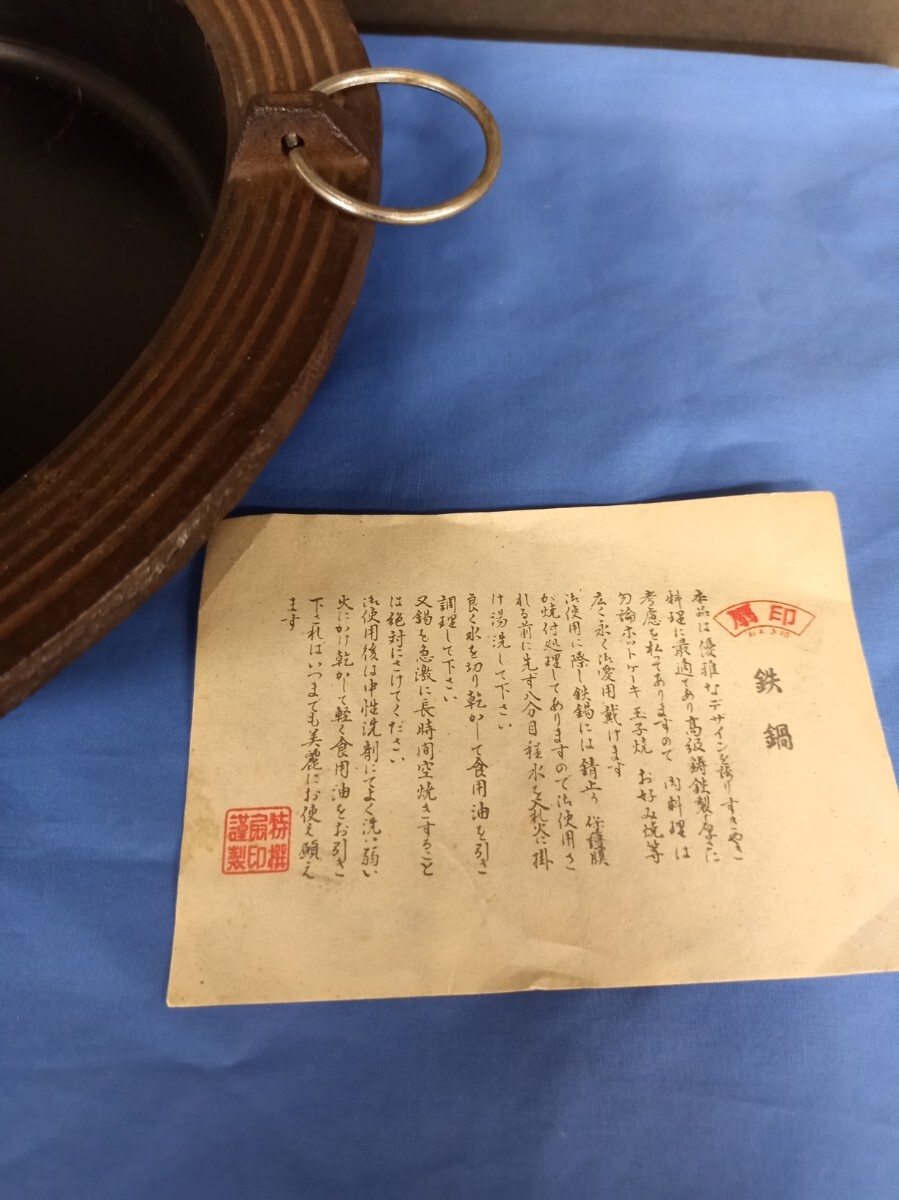 扇印
鉄鍋
本品は優雅なデザインを誇りすきやき
料理に最適であり高級鋳鉄製厚さに
考慮を払てありますので 肉料理は
勿論ホットケーキ玉子焼 お好み焼等
広く永く御愛用戴けます
御使用に際し鉄鍋には錆止め保護膜
が焼付処理してありますので御使用さ
れる前に先ず八分目程水を入れ火に掛
け湯洗して下さい
良く水を切り乾かして食用油を引き
調理して下さい
又鍋を急激に長時間空焼きすること
は絶対にさけてください
御使用後は中性洗剤にてよく洗い弱い
火にかけ乾かして軽く食用油をお引き
下さればいつまでも美麗にお使え願え
ます
特撰
扇印
謹製